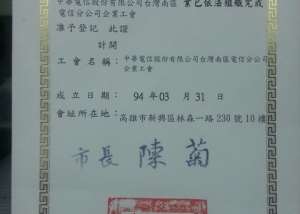 中華電信股份有限公司台灣南區 業已依法組織完成
電信分公司企業工會
准予登記 此證
計開
工會名稱:中華電信股份有限公司台灣南區電信分公司
企業工會
成立日期: 94年03月31日
會址所在地:高雄市新興區林森一路230號10樓
市長 陳菊